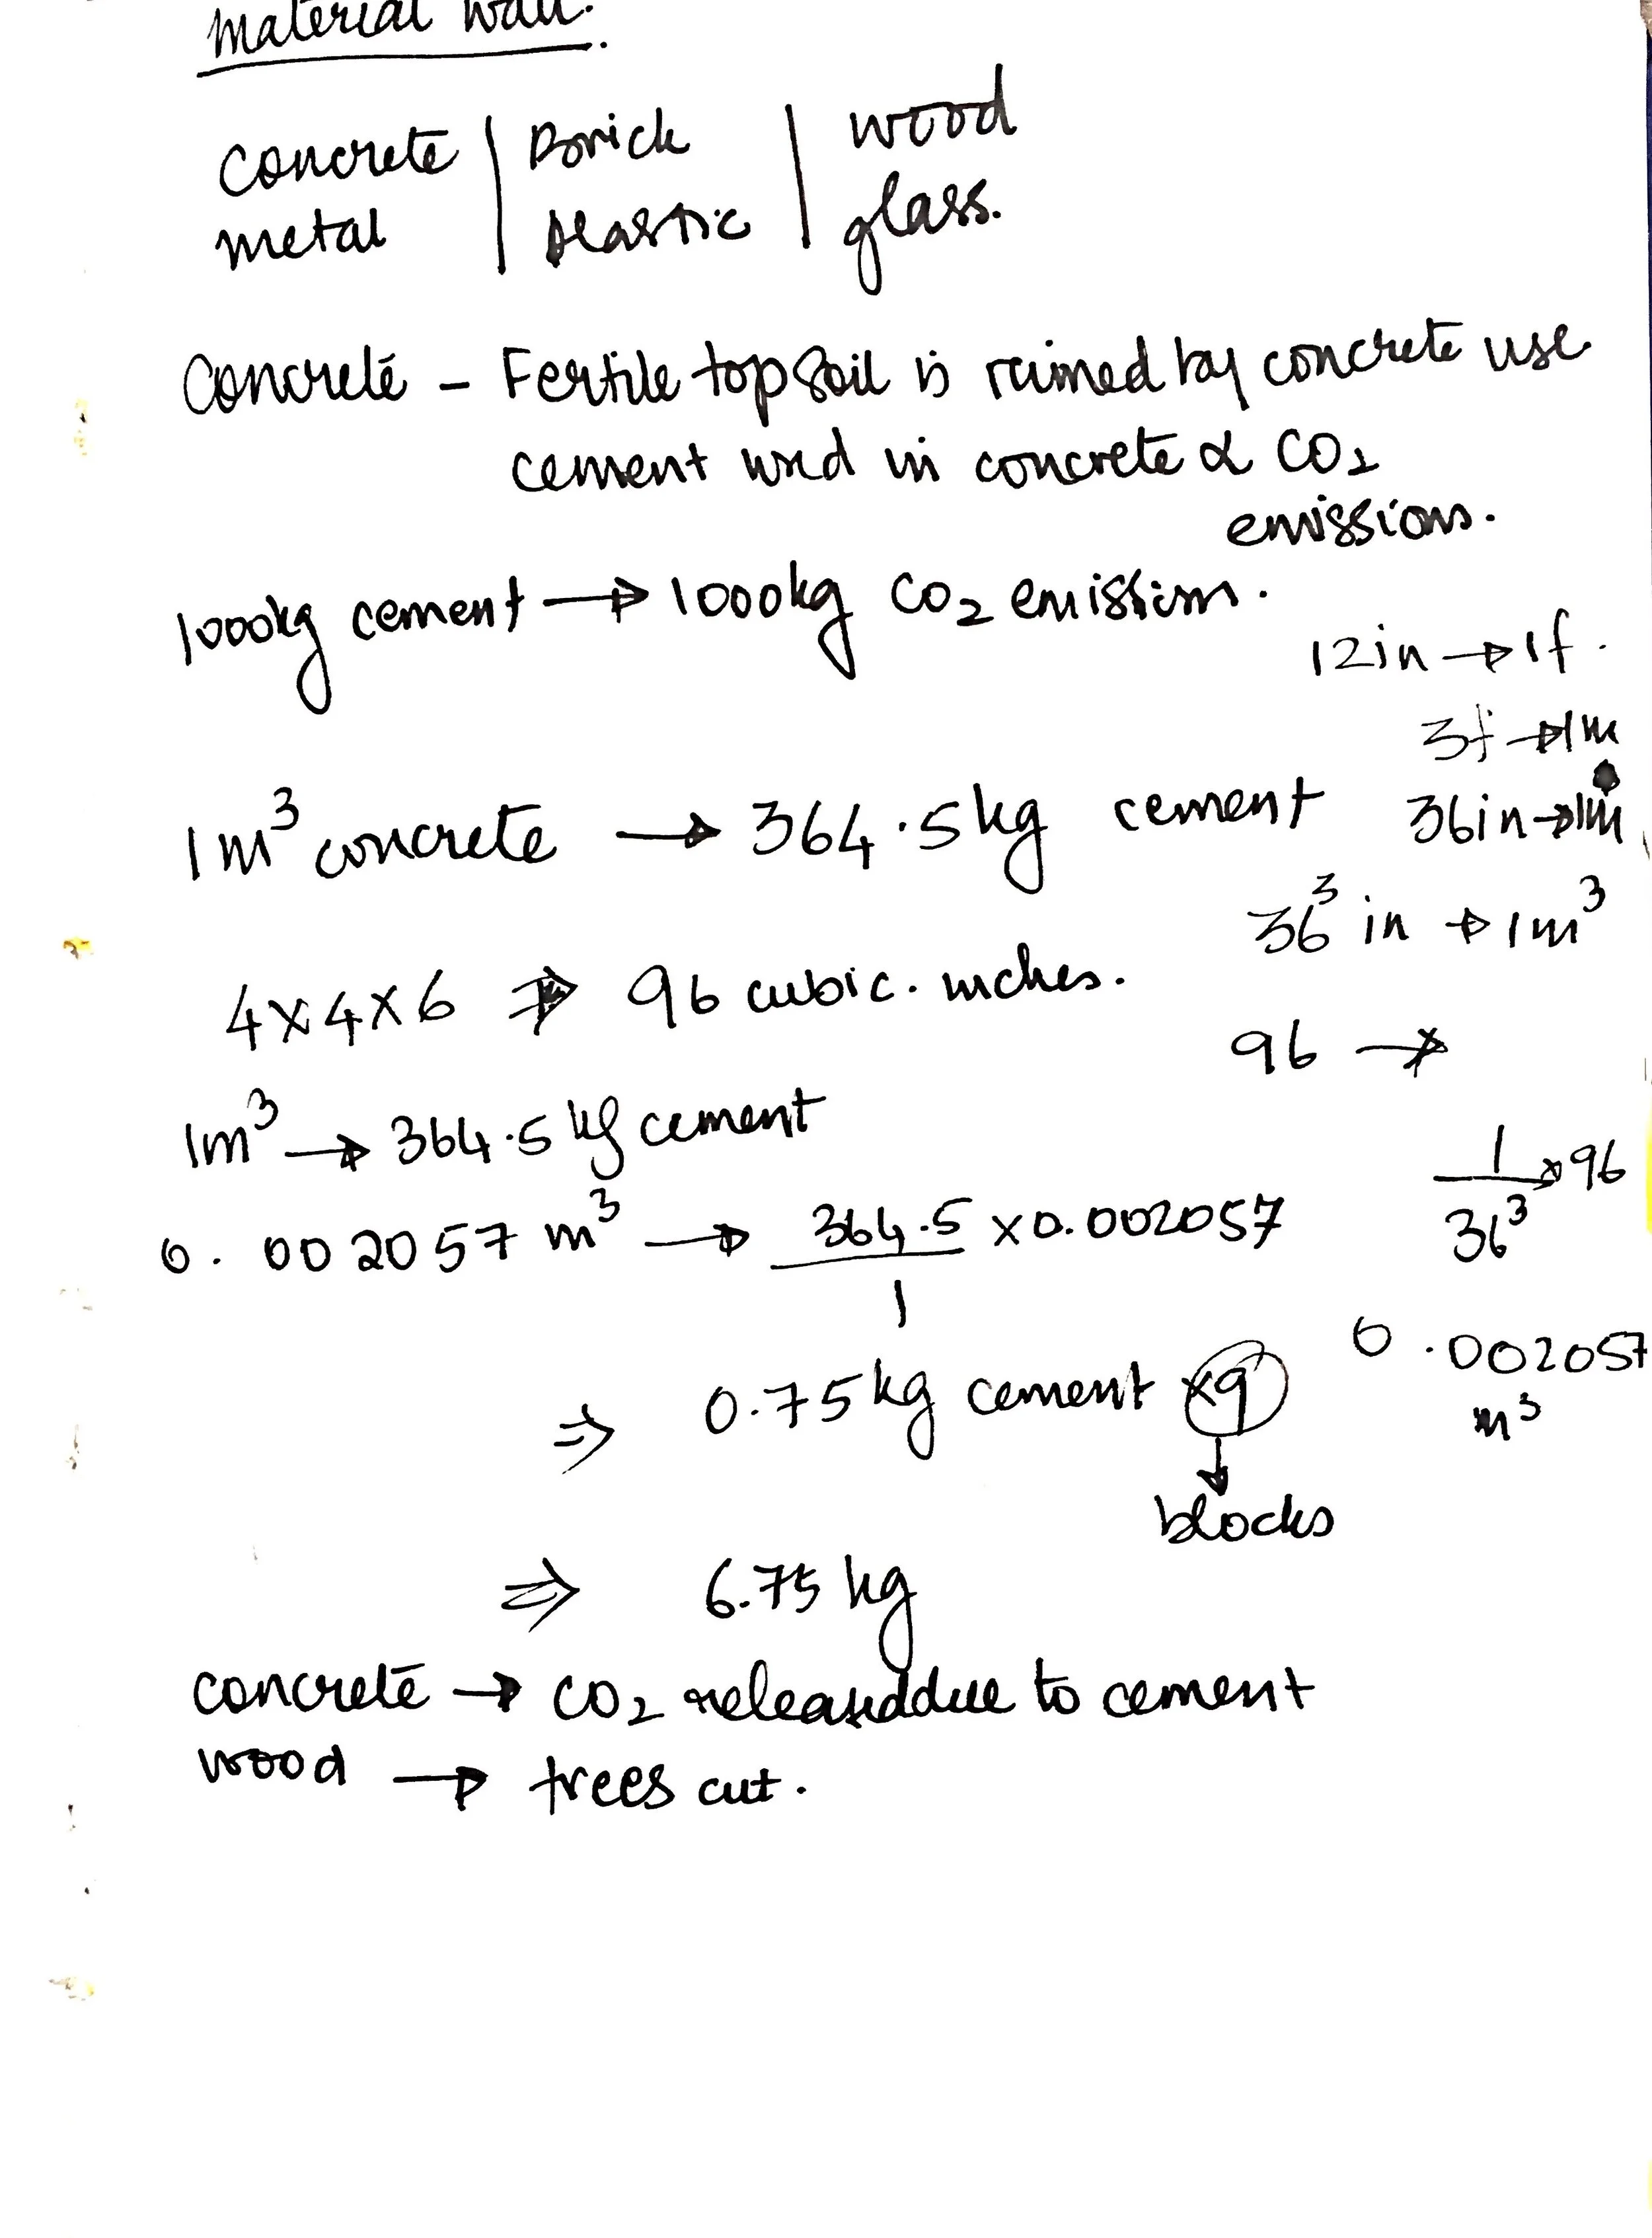 material wall.
concrete | Brick | wood
metal | plastic | glass.
Concrete - Fertile topsoil is ruined by concrete use
cement used in concrete α CO2
emissions.
1000kg cement → 1000kg CO2 emission.
12in → 1f.
3f → 1m
1m³ concrete → 364.5kg cement
36in → 1m
36³ in → 1m³
4x4x6 ⇒ 96 cubic. inches.
96 →
1m³ → 364.5 kg cement
1/36³ x 96
0.002057 m³ → 364.5/1 x 0.002057
0.002057
m³
⇒ 0.75kg cement x9
↓
blocks
⇒ 6.75 kg
concrete → CO2 released due to cement
wood → trees cut.